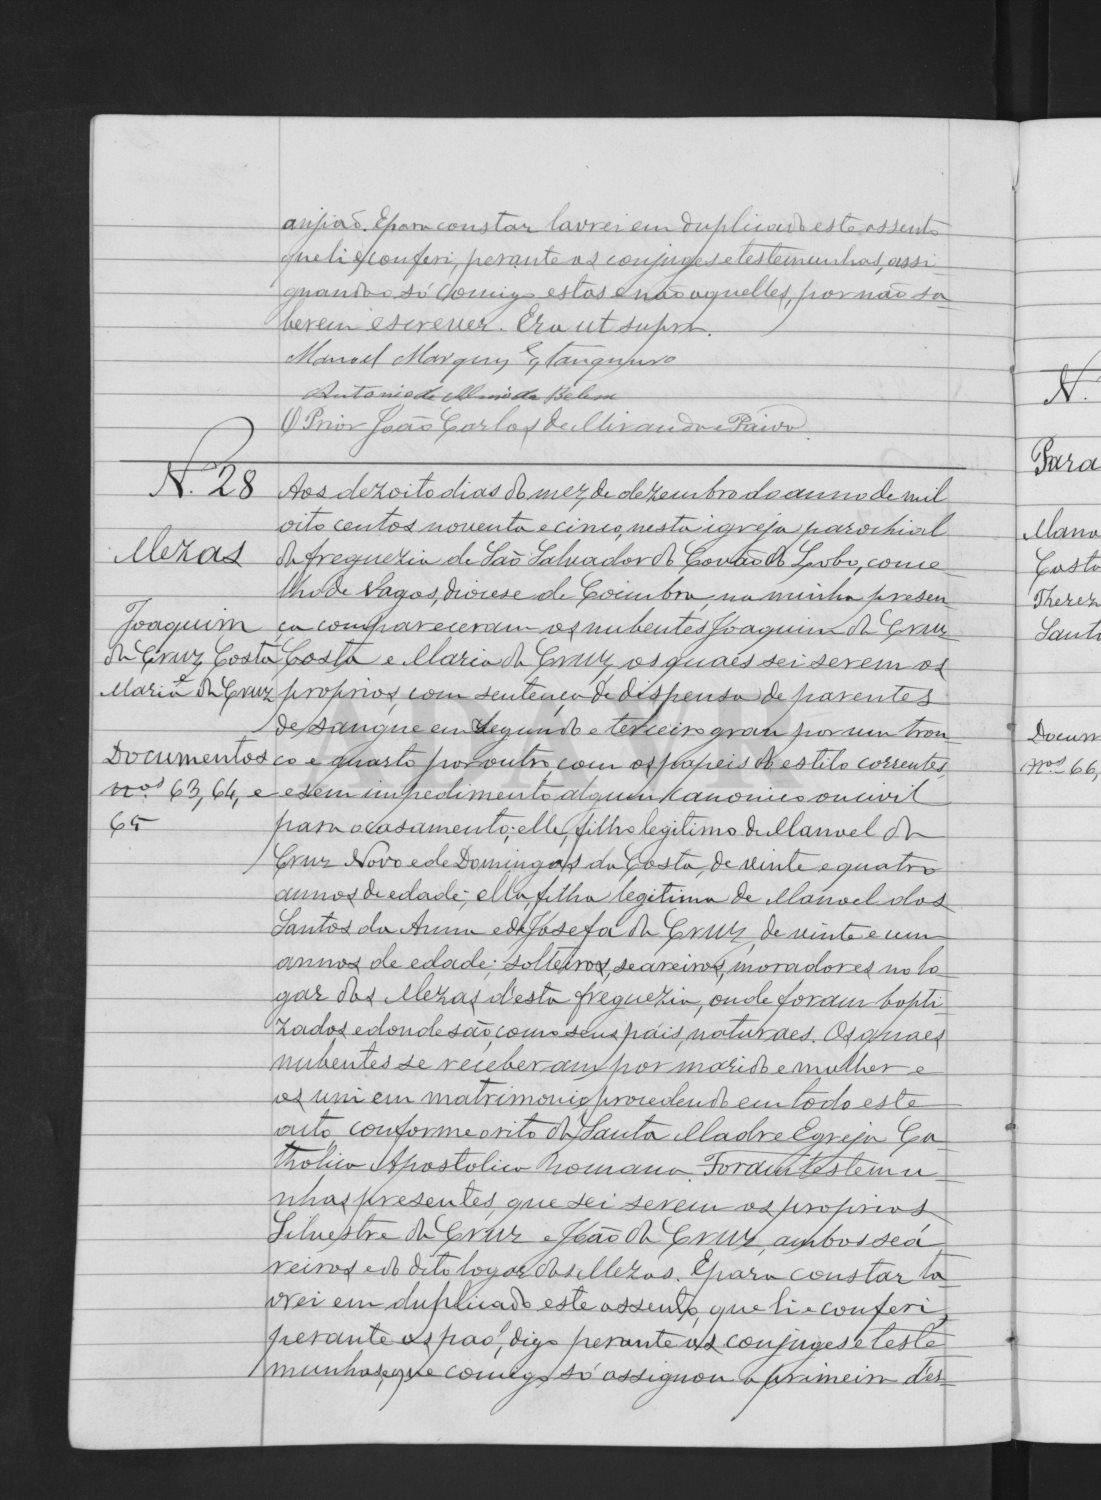 anjião. E para constar lavrei em duplicado este assento
que li e conferi, perante os conjuges e testemunhas, assi-
gnando só comigo estas e não aquelles, por não sa-
berem escrever. Era ut supra.
Manoel Marques
Antonio de Almeida Belem
O Prior João Carlos de Miranda e Paiva.
N. 28
Mezas
Joaquim
da Cruz Costa
e
Maria da Cruz
Documentos
nos 63, 64, e
65
Aos dezoito dias do mez de dezembro do anno de mil
oito centos noventa e cinco, nesta igreja parochial
da freguezia de São Salvador do Covão do Lobo, conce-
lho de Vagos, diocese de Coimbra, na minha presen-
ça compareceram os nubentes Joaquim da Cruz
Costa e Maria da Cruz, os quaes sei serem os
proprios, com sentença de dispensa de parentes
de sangue em segundo e terceiro grau por um tron-
co e quarto por outro, com os papeis do estilo correntes,
e sem impedimento algum canonico ou civil
para o casamento; elle, filho legitimo de Manoel da
Cruz Novo e de Domingas da Costa, de vinte e quatro
annos de edade; ella, filha legitima de Manoel dos
Santos da Anna e de Josefa da Cruz, de vinte e um
annos de edade: solteiros, seareiros, moradores no lo-
gar das Mezas d'esta freguezia, onde foram bapti-
zados e donde são, como seus pais, naturaes. Os quaes
nubentes se receberam por marido e mulher e
os uni em matrimonio, procedendo em todo este
auto conforme o rito da Santa Madre Egreja Ca-
tholica Apostolica Romana. Foram testemu-
nhas presentes, que sei serem os proprios
Silvestre da Cruz e João da Cruz, ambos seá-
reiros e do dito logar das Mezas. E para constar la-
vrei em duplicado este assento, que li e conferi,
perante os pao, digo perante os conjuges e teste-
munhas, que comigo só assignou a primeira d'es-
N.
Para
Mano
Costa
Therez
Santo
Docum
nos 66,
ADAVR